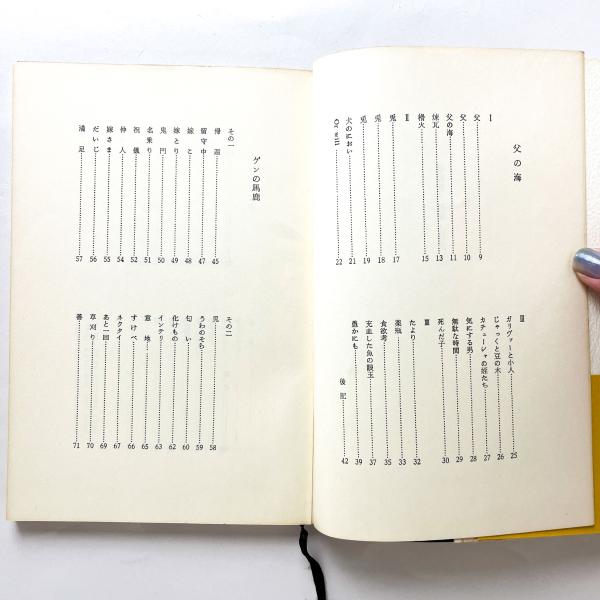 父の海
I
父……9
父……10
父の海……11
煉瓦……13
橇火……15
II
兎……17
兎……18
兎……19
犬のにおい……21
Or will……22
III
ガリヴァーと小人……25
じゃっくと豆の木……26
カチューシャの姪たち……27
気にする男……28
無駄な時間……29
死んだ子……30
III
たより……32
薬瓶……33
食欲考……35
充血した魚の眼玉……37
愚かにも……39
後記……42
ゲンの馬鹿
その一
帰還……45
留守中……47
嫁こ……48
嫁とり……49
鬼門……50
名乗り……51
祝儀……52
仲人……54
嫁さま……55
だいじ……56
満足……57
その二
児……58
うわのそら……59
匂い……60
化けもの……62
インテリ……63
意地……65
すけべ……66
ネクタイ……67
あと一回……69
草刈り……70
善……71